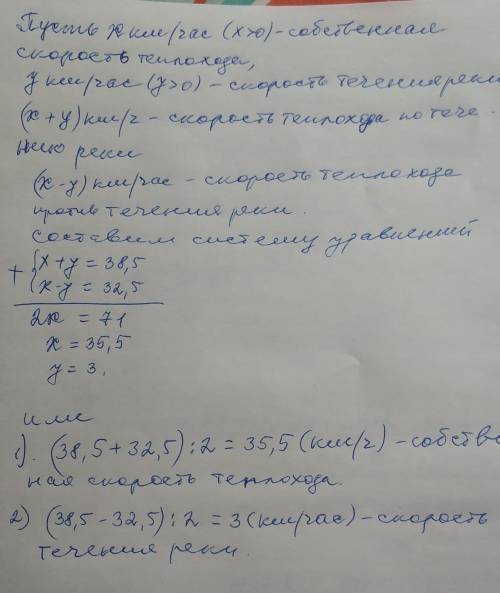 Пусть x км/час (x>0) - собственная
скорость теплохода,
y км/час (y>0) - скорость течения реки
(x+y) км/ч - скорость теплохода по тече-
нию реки
(x-y) км/час - скорость теплохода
против течения реки.
Составим систему уравнений
+ { x+y = 38,5
{ x-y = 32,5
2x = 71
x = 35,5
y = 3.
или
1). (38,5+32,5):2 = 35,5 (км/ч) - собстве
ная скорость теплохода.
2) (38,5-32,5):2 = 3 (км/час) - скорость
течения реки.